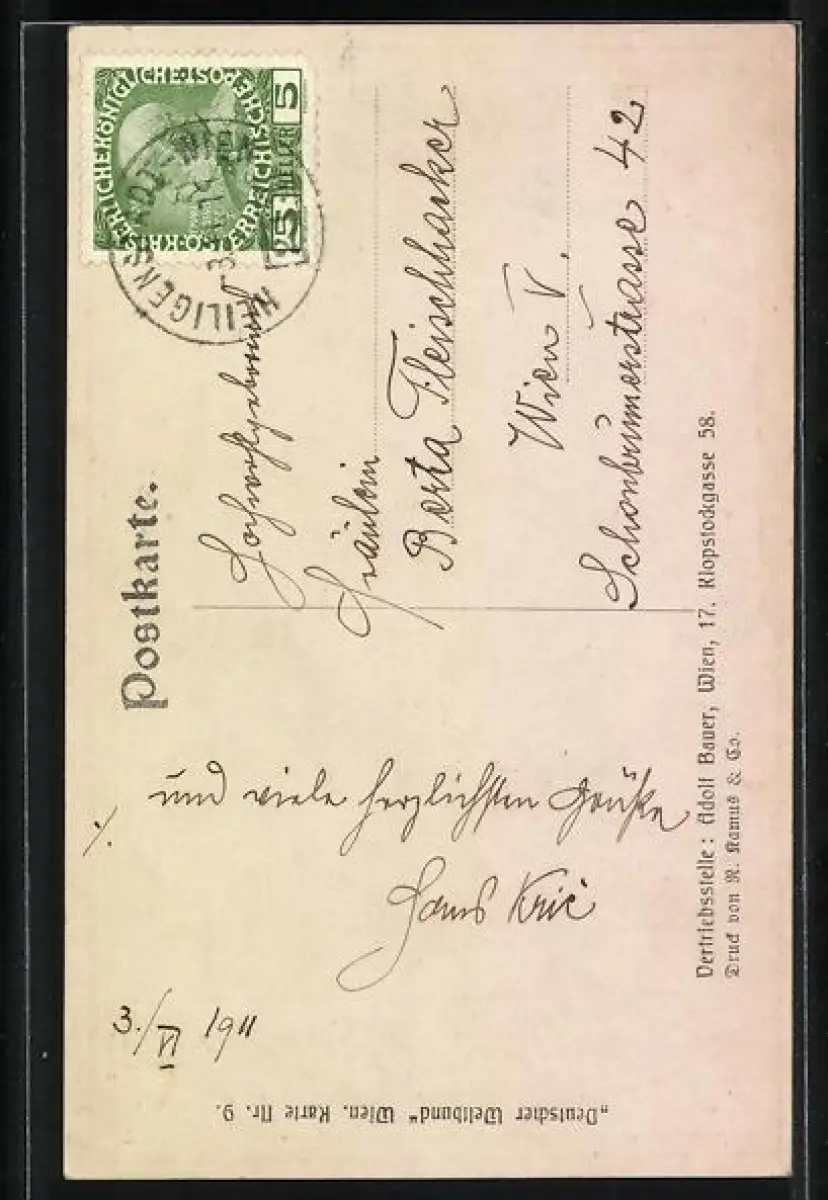 Postkarte.
KAISERLICHE KÖNIGLICHE ÖSTERREICHISCHE
5 HELLER 5
HEILIGENSTADT-WIEN
Hochwohlgeboren
Fräulein
Berta Fleischhacker
Wien V.
Schönbrunnerstrasse 42
./.
und viele herzlichsten Grüße
Hans
3./VI 1911
Vertriebsstelle: Adolf Bauer, Wien, 17. Klopstockgasse 58.
Druck von R. Kamus & Co.
„Deutscher Weltbund" Wien. Karte Nr. 9.